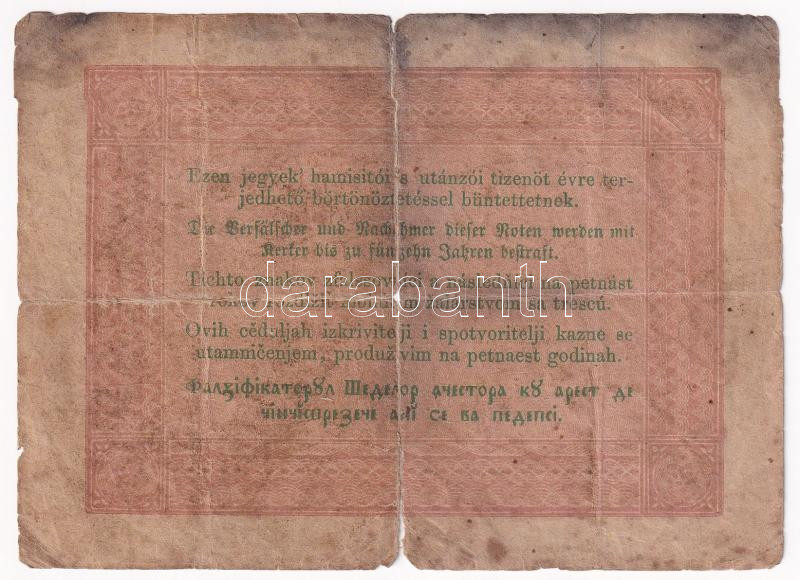 Ezen jegyek' hamisitói 's utánzói tizenöt évre ter-
jedhető börtönöztetéssel büntettetnek.
Die Verfälscher und Nachahmer dieser Noten werden mit
Kerker bis zu fünfzehn Jahren bestraft.
Tíchto znakov na petnást
sa trescú.
darabanth
Ovih cěduljah izkrivitelji i spotvoritelji kazne se
utamničenjem, produživim na petnaest godinah.
Фалȣіфікаторꙋл Шеделор ачестора кꙋ арест де
чінчіспрезече анї се ва педепсі.